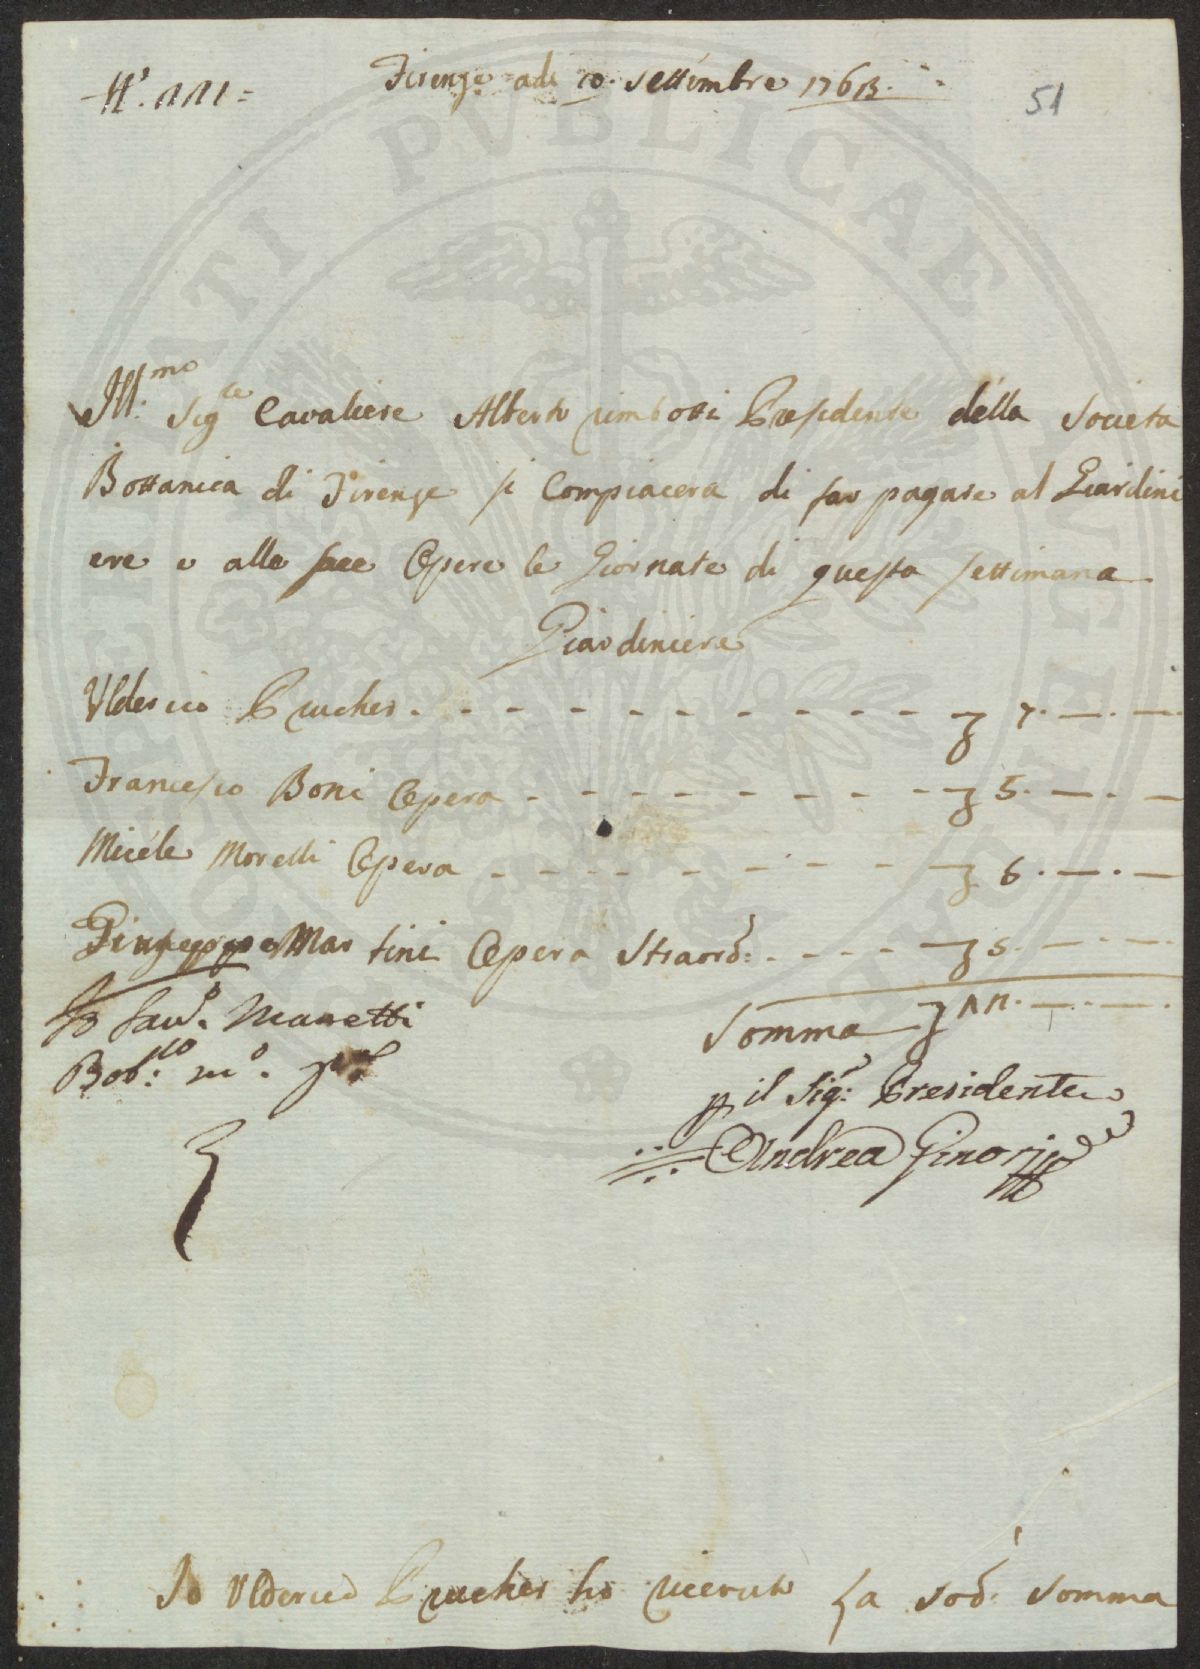 Firenze adi 10. Settembre 1763.
51
Ill.mo Sig.re Cavaliere Alberto Rimbotti Presidente della Società
Bottanica di Firenze si Compiacera di far pagare al Giardini
ere e alle sue Opere le Giornate di questa settimana
Giardiniere
Ulderico Prucher. - - - - - - - - - - 7. — . —
Francesco Boni Opera - - - - - - - - 5. — . —
Micele Morelli Opera - - - - - - - 6. — . —
Giuseppe Martini Opera Straord: - - - - 5. — . —
Io Sav.o Manetti
Somma
p il Sig.r Presidente
Andrea Ginori
Io Ulderico Prucher ho ricevuto La Sod: Somma